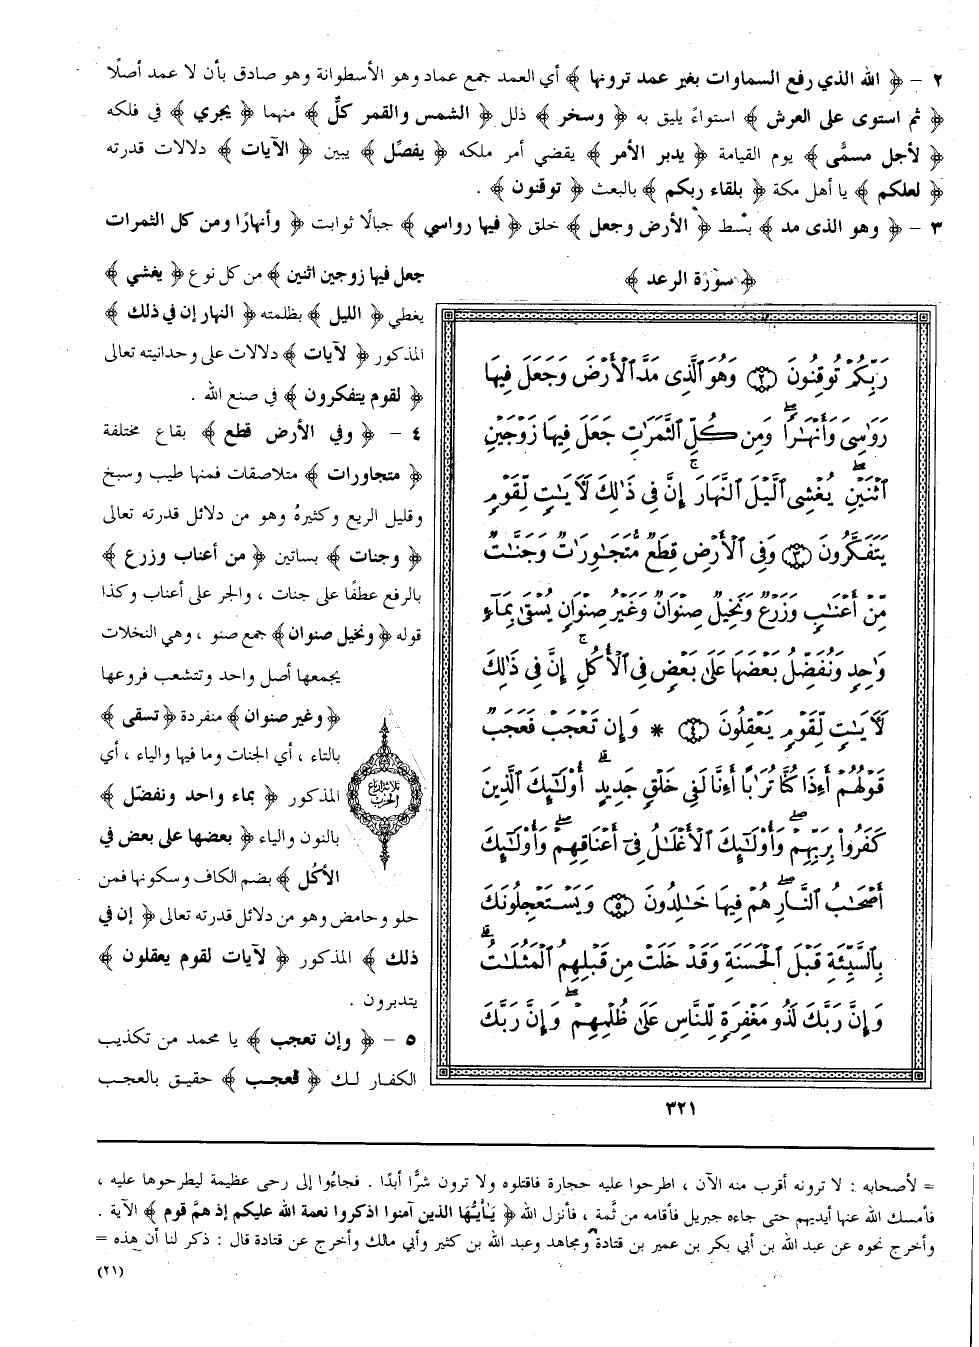 ٢ - ﴿ الله الذي رفع السماوات بغير عمد ترونها ﴾ أي العمد جمع عماد وهو الأسطوانة وهو صادق بأن لا عمد أصلًا
﴿ ثم استوى على العرش ﴾ استواءً يليق به ﴿ وسخر ﴾ ذلل ﴿ الشمس والقمر كلٌّ ﴾ منهما ﴿ يجري ﴾ في فلكه
﴿ لأجل مسمًّى ﴾ يوم القيامة ﴿ يدبر الأمر ﴾ يقضي أمر ملكه ﴿ يفصّل ﴾ يبين ﴿ الآيات ﴾ دلالات قدرته
﴿ لعلكم ﴾ يا أهل مكة ﴿ بلقاء ربكم ﴾ بالبعث ﴿ توقنون ﴾ .
٣ - ﴿ وهو الذى مد ﴾ بسط ﴿ الأرض وجعل ﴾ خلق ﴿ فيها رواسي ﴾ جبالًا ثوابت ﴿ وأنهارًا ومن كل الثمرات
جعل فيها زوجين اثنين ﴾ من كل نوع ﴿ يغشي ﴾
يغطي ﴿ الليل ﴾ بظلمته ﴿ النهار إن في ذلك ﴾
المذكور ﴿ لآيات ﴾ دلالات على وحدانيته تعالى
﴿ لقوم يتفكرون ﴾ في صنع الله .
٤ - ﴿ وفي الأرض قطع ﴾ بقاع مختلفة
﴿ متجاورات ﴾ متلاصقات فمنها طيب وسبخ
وقليل الريع وكثيرهُ وهو من دلائل قدرته تعالى
﴿ وجنات ﴾ بساتين ﴿ من أعناب وزرع ﴾
بالرفع عطفًا على جنات ، والجر على أعناب وكذا
قوله ﴿ ونخيل صنوان ﴾ جمع صنو ، وهي النخلات
يجمعها أصل واحد وتتشعب فروعها
﴿ وغير صنوان ﴾ منفردة ﴿ تسقى ﴾
بالتاء ، أي الجنات وما فيها والياء ، أي
المذكور ﴿ بماء واحد ونفضّل ﴾
بالنون والياء ﴿ بعضها على بعض في
الأُكُل ﴾ بضم الكاف وسكونها فمن
حلو وحامض وهو من دلائل قدرته تعالى ﴿ إن في
ذلك ﴾ المذكور ﴿ لآيات لقوم يعقلون ﴾
يتدبرون .
٥ - ﴿ وإن تعجب ﴾ يا محمد من تكذيب
الكفار لك ﴿ فعجب ﴾ حقيق بالعجب
ثلاثة أرباع
الحزب
﴿ سورة الرعد ﴾
رَبِّكُمْ تُوقِنُونَ ٢ وَهُوَ ٱلَّذِى مَدَّ ٱلْأَرْضَ وَجَعَلَ فِيهَا
رَوَٰسِىَ وَأَنْهَٰرًا ۖ وَمِن كُلِّ ٱلثَّمَرَٰتِ جَعَلَ فِيهَا زَوْجَيْنِ
ٱثْنَيْنِ ۖ يُغْشِى ٱلَّيْلَ ٱلنَّهَارَ ۚ إِنَّ فِى ذَٰلِكَ لَءَايَٰتٍ لِّقَوْمٍ
يَتَفَكَّرُونَ ٣ وَفِى ٱلْأَرْضِ قِطَعٌ مُّتَجَٰوِرَٰتٌ وَجَنَّٰتٌ
مِّنْ أَعْنَٰبٍ وَزَرْعٌ وَنَخِيلٌ صِنْوَانٌ وَغَيْرُ صِنْوَانٍ يُسْقَىٰ بِمَآءٍ
وَٰحِدٍ وَنُفَضِّلُ بَعْضَهَا عَلَىٰ بَعْضٍ فِى ٱلْأُكُلِ ۚ إِنَّ فِى ذَٰلِكَ
لَءَايَٰتٍ لِّقَوْمٍ يَعْقِلُونَ ٤ * وَإِن تَعْجَبْ فَعَجَبٌ
قَوْلُهُمْ أَءِذَا كُنَّا تُرَٰبًا أَءِنَّا لَفِى خَلْقٍ جَدِيدٍ ۗ أُو۟لَٰٓئِكَ ٱلَّذِينَ
كَفَرُوا۟ بِرَبِّهِمْ ۖ وَأُو۟لَٰٓئِكَ ٱلْأَغْلَٰلُ فِىٓ أَعْنَاقِهِمْ ۖ وَأُو۟لَٰٓئِكَ
أَصْحَٰبُ ٱلنَّارِ ۖ هُمْ فِيهَا خَٰلِدُونَ ٥ وَيَسْتَعْجِلُونَكَ
بِٱلسَّيِّئَةِ قَبْلَ ٱلْحَسَنَةِ وَقَدْ خَلَتْ مِن قَبْلِهِمُ ٱلْمَثُلَٰتُ ۗ
وَإِنَّ رَبَّكَ لَذُو مَغْفِرَةٍ لِّلنَّاسِ عَلَىٰ ظُلْمِهِمْ ۖ وَإِنَّ رَبَّكَ
٣٢١
= لأصحابه : لا ترونه أقرب منه الآن ، اطرحوا عليه حجارة فاقتلوه ولا ترون شرًّا أبدًا . فجاءُوا إلى رحى عظيمة ليطرحوها عليه ،
فأمسك الله عنها أيديهم حتى جاءه جبريل فأقامه من ثَمة ، فأنزل الله ﴿ يَأيُّها الذين آمنوا اذكروا نعمة الله عليكم إذ همَّ قوم ﴾ الآية .
وأخرج نحوه عن عبد الله بن أبي بكر بن عمير بن قتادة ومجاهد وعبد الله بن كثير وأبي مالك وأخرج عن قتادة قال : ذكر لنا أن هذه =
(٢١)